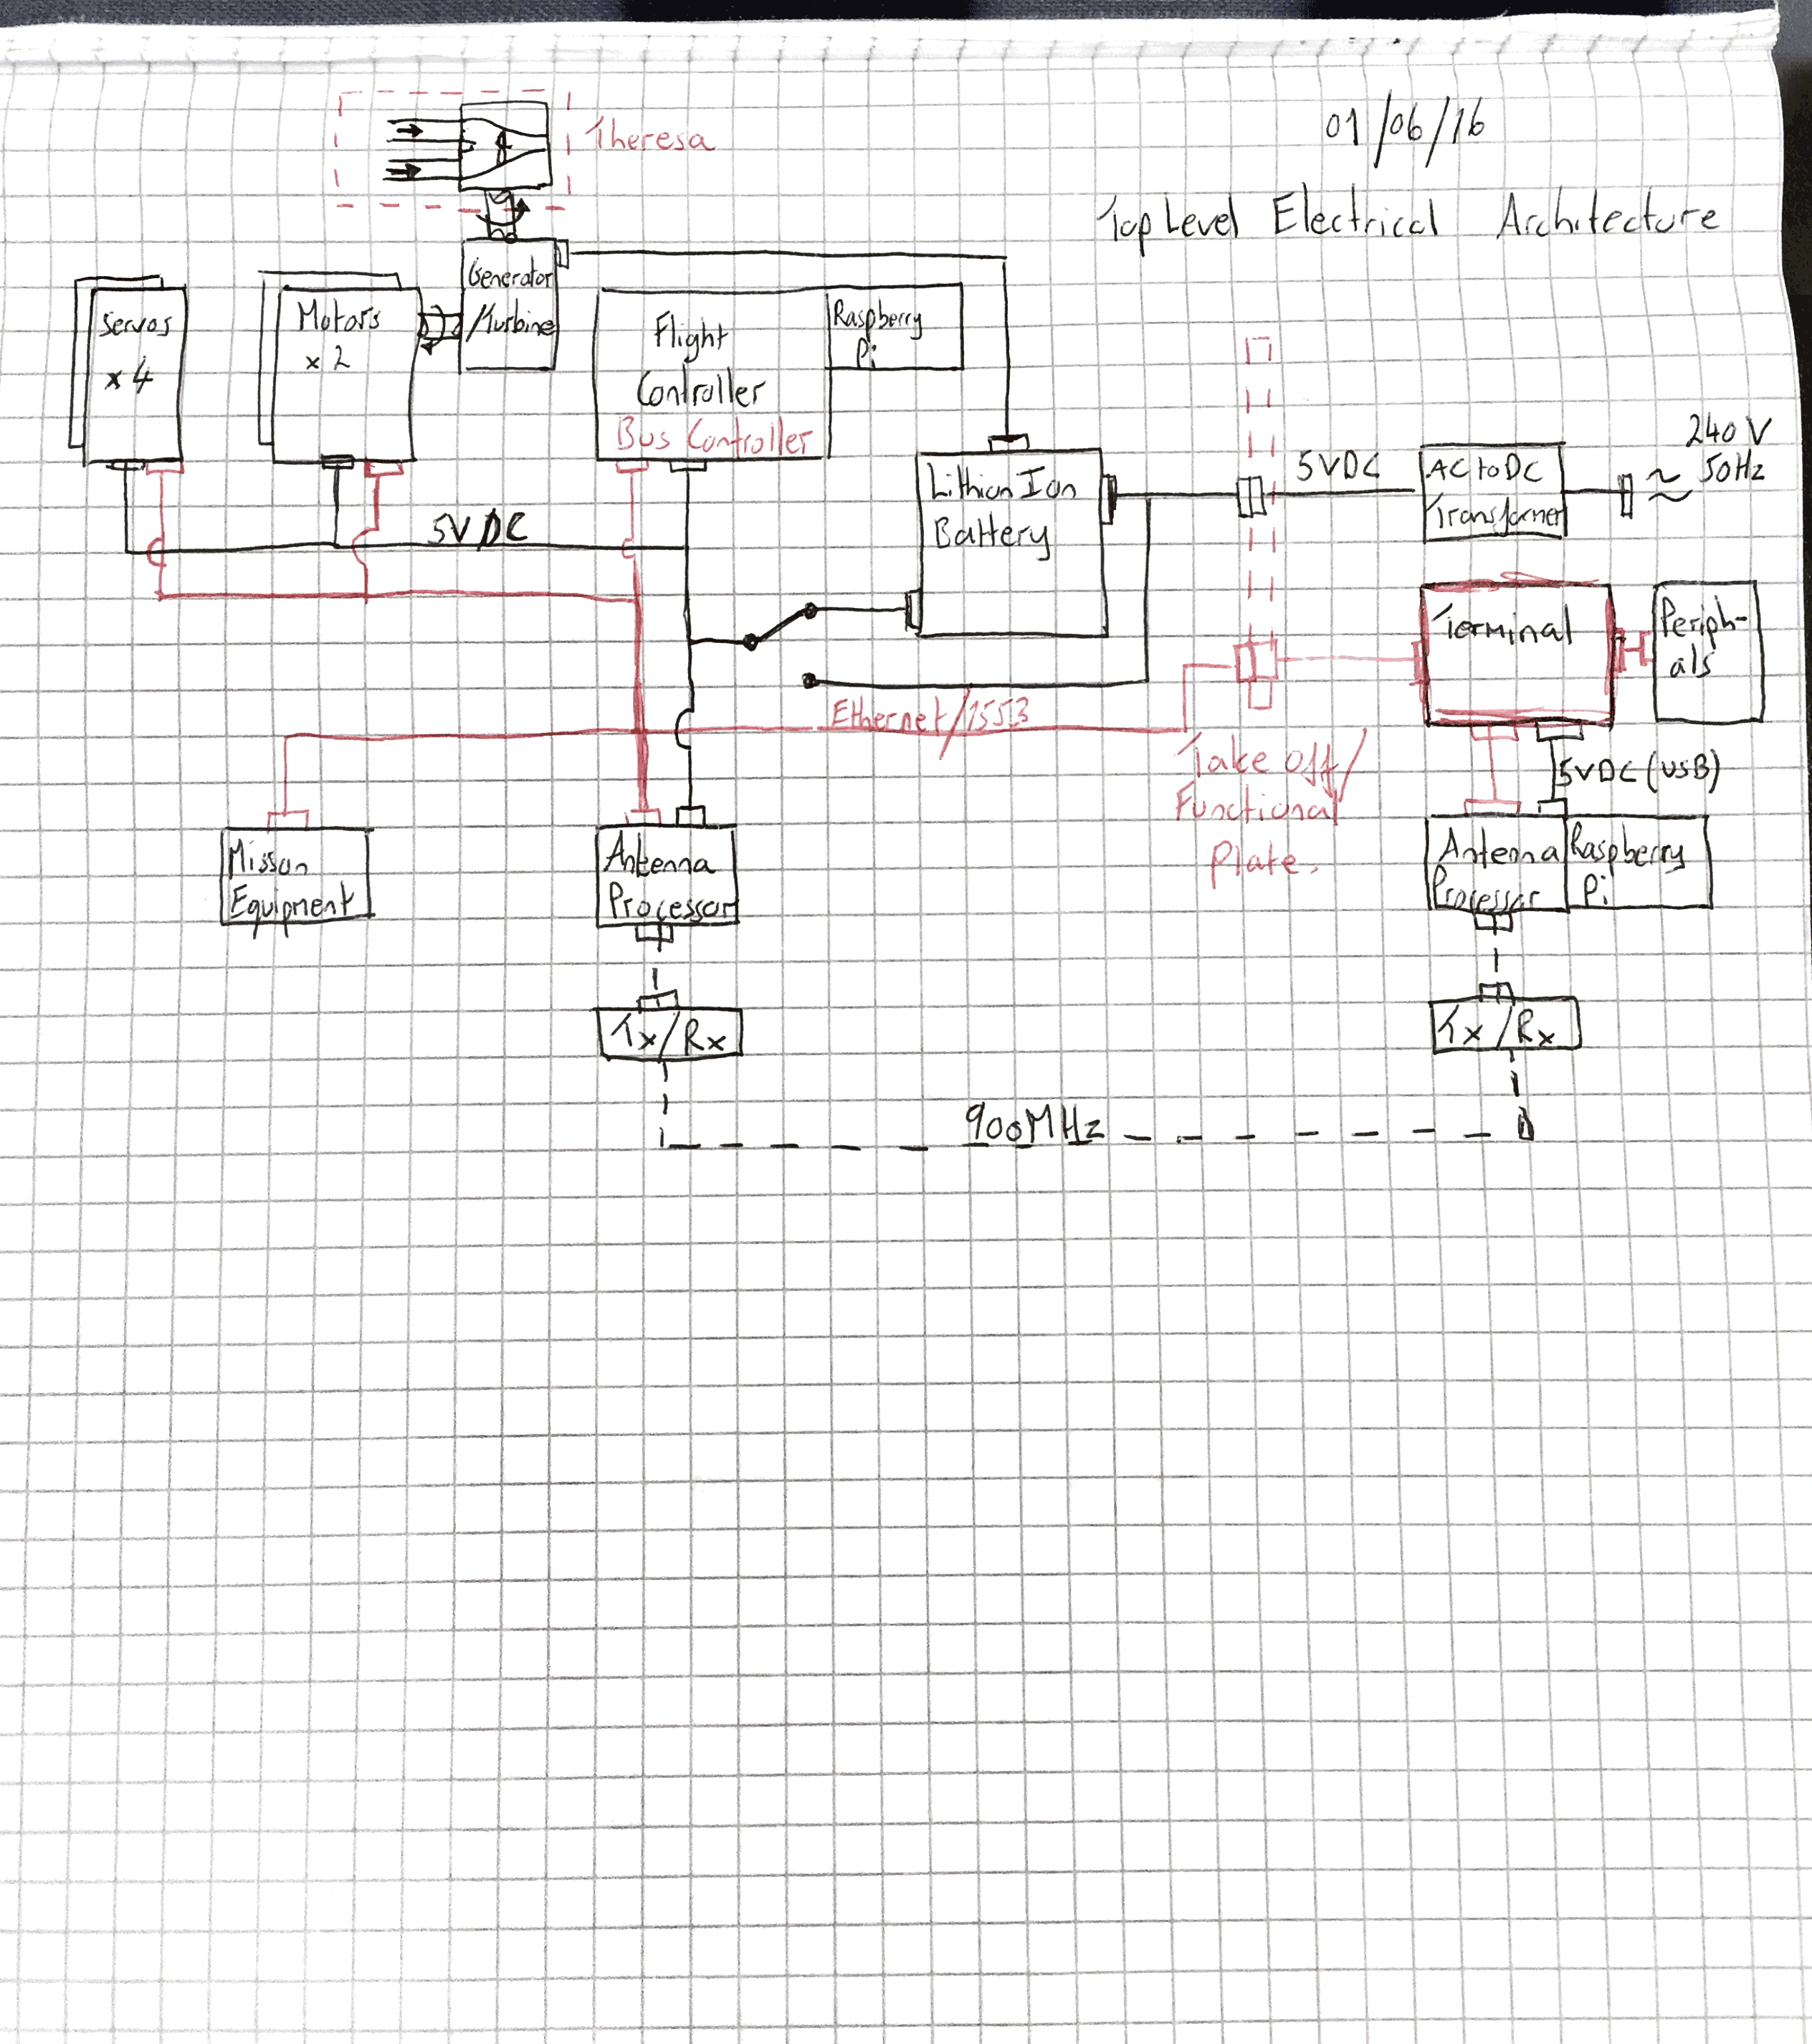 01/06/16
Top Level Electrical Architecture
Theresa
Generator
/Turbine
Servos
x 4
Motors
x 2
Flight
Controller
Bus Controller
Raspberry
Pi
Lithion Ion
Battery
5VDC
AC to DC
Transformer
240 V
50Hz
5V DC
Terminal
Periph-
als
Ethernet/1553
Take off/
Functional
Plate.
5VDC (USB)
Misson
Equipment
Antenna
Processor
Antenna
Processor
Raspberry
Pi
Tx/Rx
Tx/Rx
900MHz